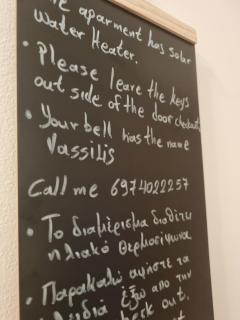 aparment has solar
Water Heater.
• Please leave the keys
out side of the door checkout
• Your bell has the name
Vassilis
Call me 6974022257
• Το διαμέρισμα διαθέτει
ηλιακό θερμοσίφωνα
• Παρακαλώ αφήστε τα
έξω από την
out.